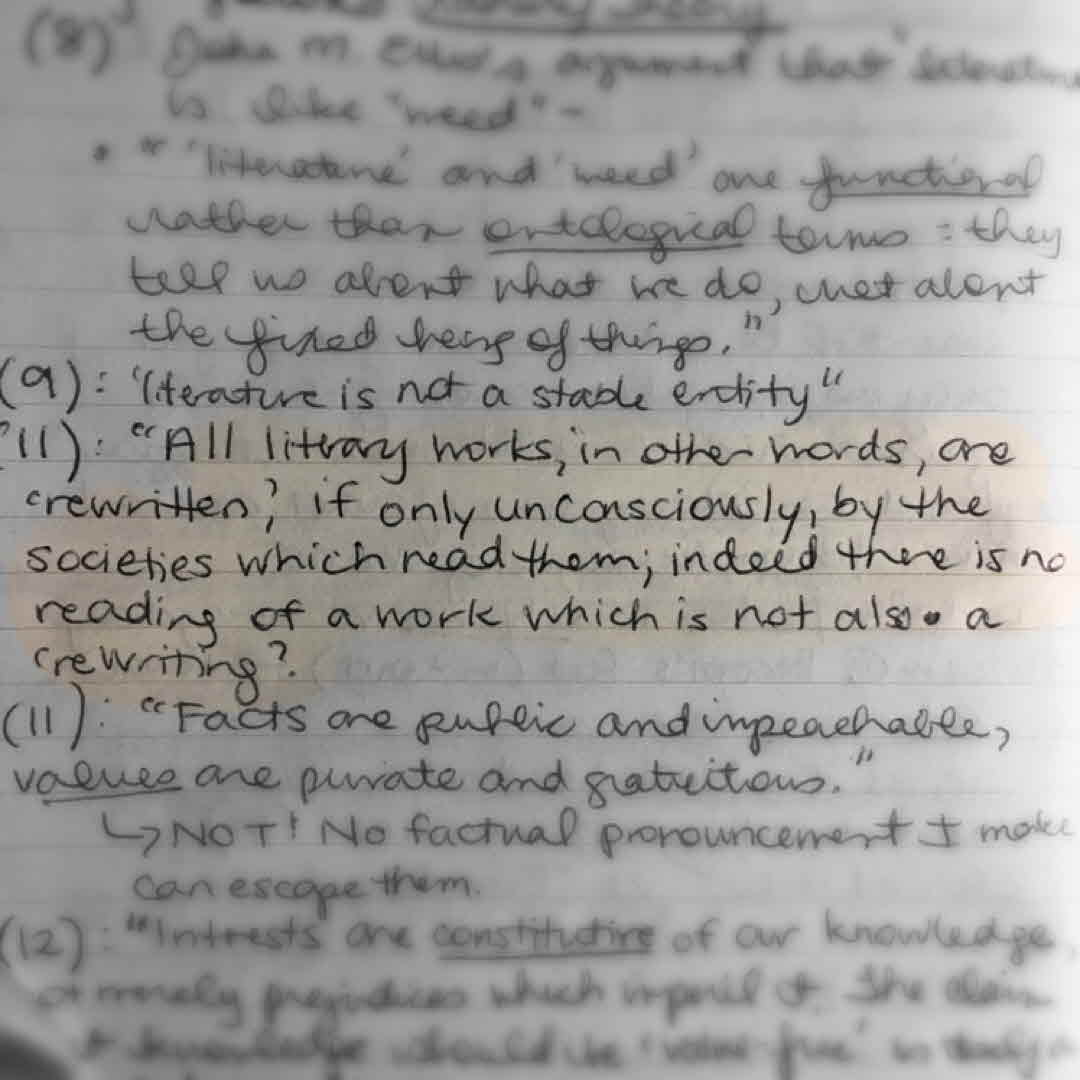 Literary Theory
(8) John M. Ellis's argument that "literature
is like "weed" -
• " 'literature' and 'weed' are functional
rather than ontological terms : they
tell us about what we do, not about
the fixed being of things."
(9): "literature is not a stable entity"
(11): "All literary works, in other words, are
'rewritten,' if only unconsciously, by the
societies which read them; indeed there is no
reading of a work which is not also a
'rewriting'.
(11): "Facts are public and inpeachable,
values are private and gratuitous."
↳ NOT! No factual pronouncement I make
can escape them.
(12): "Intrests are constitutive of our knowledge,
merely prejudices which imperil it. The claim
knowledge should be 'value-free' is